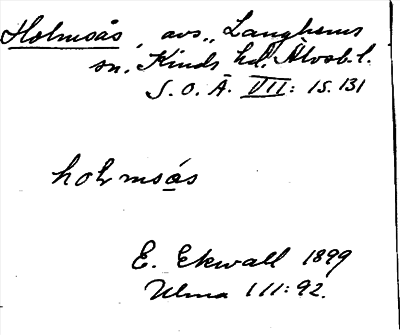 Holmsås, avs., Länghems
sn. Kinds hd. Älvsb. l.
S. O. Ä. VII: 1 s. 131
holmsås
E. Ekwall 1899
Ulma 111:92.